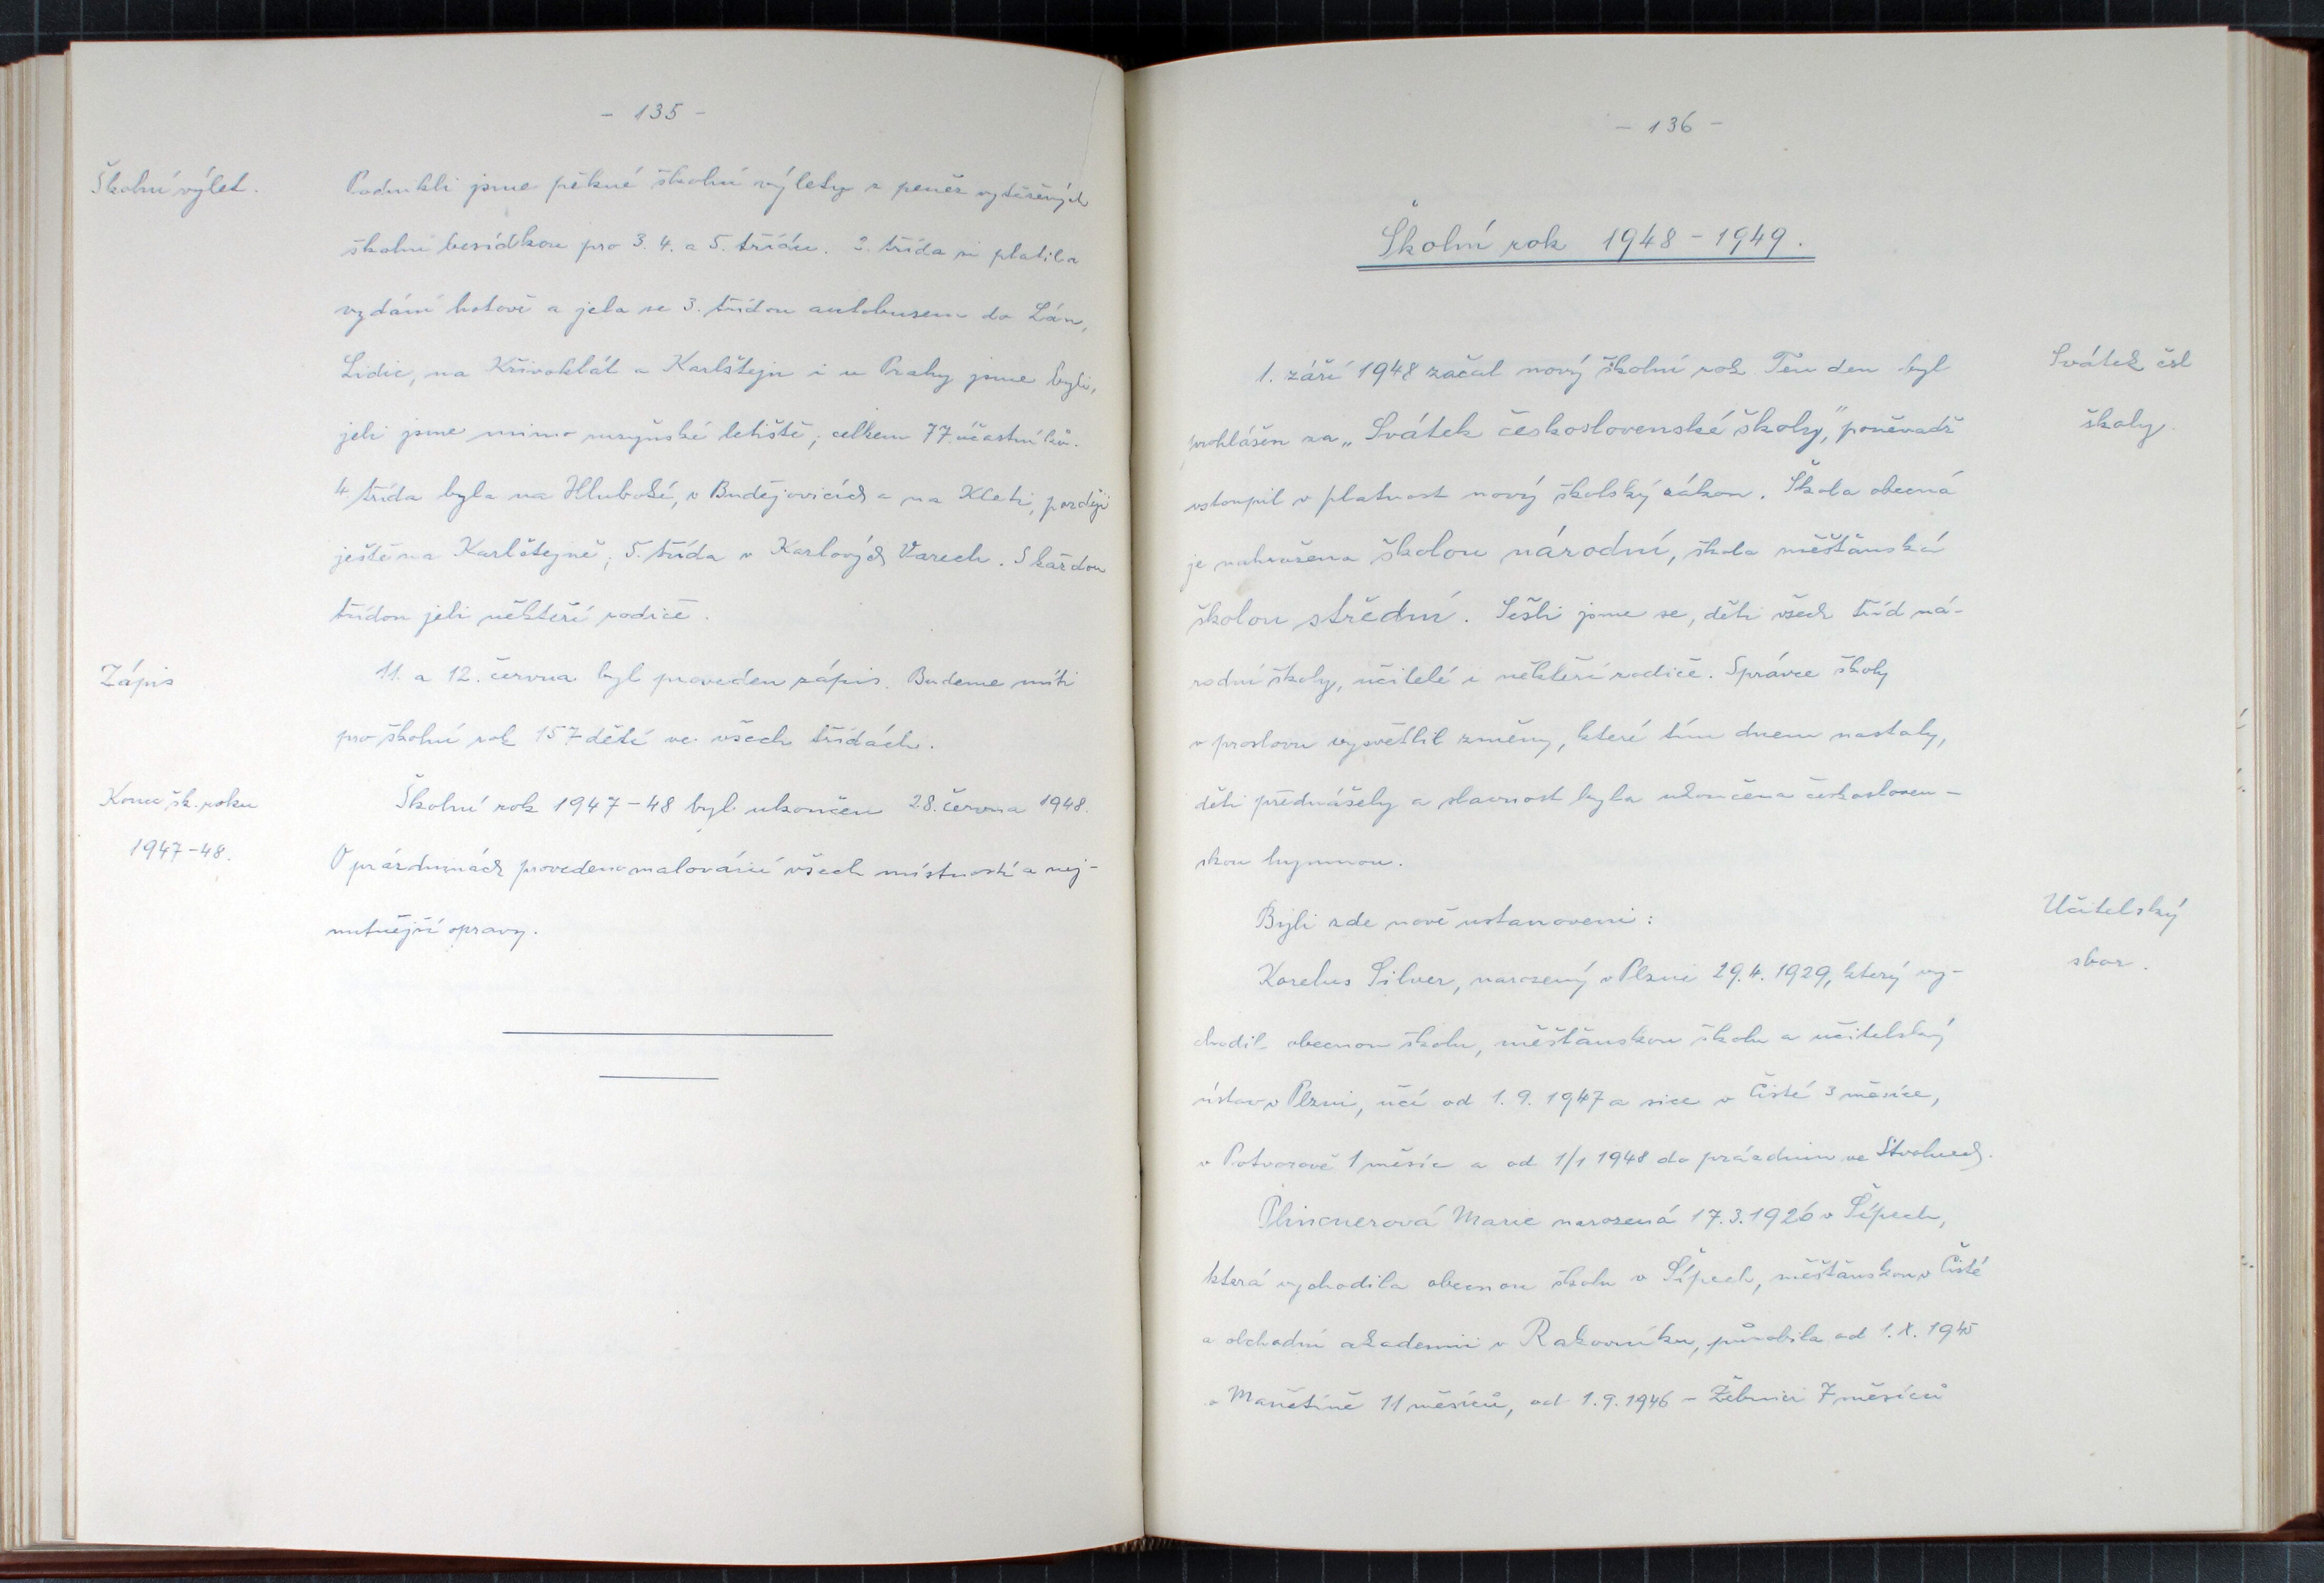 - 135 -
Školní výlet.
Podnikli jsme pěkné školní výlety z peněz vytěžených
školní besídkou pro 3. 4. a 5. třídu. 2. třída si platila
vydání hotově a jela se 3. třídou autobusem do Lán,
Lidic, na Křivoklát a Karlštejn i u Prahy jsme byli,
jeli jsme mimo ruzyňské letiště; celkem 77 účastníků.
4 třída byla na Hluboké, v Budějovicích a na Kleti, později
ještě na Karlštejně, 5. třída v Karlových Varech. S každou
třídou jeli někteří rodiče.
Zápis
11. a 12. června byl proveden zápis. Budeme míti
pro školní rok 157 dětí ve všech třídách.
Konec šk. roku
1947-48.
Školní rok 1947-48 byl ukončen 28. června 1948.
O prázdninách provedeno malování všech místností a nej-
nutnější opravy.
- 136 -
Školní rok 1948-1949.
Svátek čsl
školy.
1. září 1948 začal nový školní rok Ten den byl
prohlášen za „Svátek československé školy," poněvadž
vstoupil v platnost nový školský zákon. Škola obecná
je nahrazena školou národní, škola měšťanská
školou střední. Sešli jsme se, děti všech tříd ná-
rodní školy, učitelé i někteří rodiče. Správce školy
v proslovu vysvětlil změny, které tím dnem nastaly,
děti přednášely a slavnost byla ukončena českosloven-
skou hymnou.
Učitelský
sbor.
Byli zde nově ustanoveni:
Korelus Silver, narozený v Plzni 29.4.1929, který vy-
chodil obecnou školu, měšťanskou školu a učitelský
ústav v Plzni, učí od 1.9.1947 a sice v Čisté 3 měsíce,
v Potvorově 1 měsíc a od 1/1 1948 do prázdnin ve
Marie narozená 17.3.1926 v Šípech,
která vychodila obecnou školu v Šípech, měšťanskou v Čisté
a obchodní akademii v Rakovníku, působila od 1.X.1945
v Manětíně 11 měsíců, od 1.9.1946 - Žebnici 7 měsíců